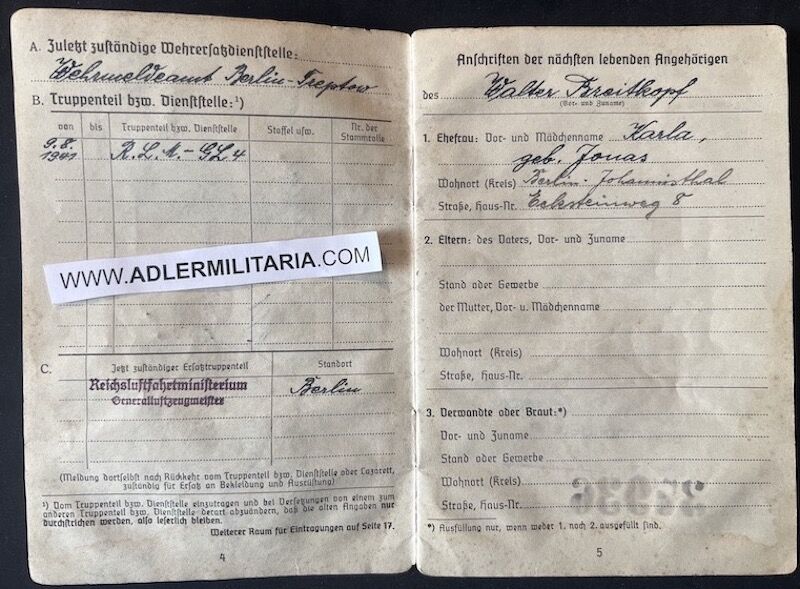 A. Zuletzt zuständige Wehrersatzdienststelle:
Wehrmeldeamt Berlin-Treptow
B. Truppenteil bzw. Dienststelle:¹)
von bis Truppenteil bzw. Dienststelle Staffel usw. Nr. der Stammrolle
9.8. 1941 R.L.M.-GL4
WWW.ADLERMILITARIA.COM
C. Jetzt zuständiger Ersatztruppenteil Standort
Reichsluftfahrtministerium Berlin
Generalluftzeugmeister
(Meldung dortselbst nach Rückkehr vom Truppenteil bzw. Dienststelle oder Lazarett,
zuständig für Ersatz an Bekleidung und Ausrüstung)
¹) Vom Truppenteil bzw. Dienststelle einzutragen und bei Versetzungen von einem zum
anderen Truppenteil bzw. Dienststelle derart abzuändern, daß die alten Angaben nur
durchstrichen werden, also leserlich bleiben.
Weiterer Raum für Eintragungen auf Seite 17.
4
Anschriften der nächsten lebenden Angehörigen
des Walter Breitkopf
(Vor- und Zuname)
1. Ehefrau: Vor- und Mädchenname Karla,
geb. Jonas
Wohnort (Kreis) Berlin-Johannisthal
Straße, Haus-Nr. Ecksteinweg 8
2. Eltern: des Vaters, Vor- und Zuname
Stand oder Gewerbe
der Mutter, Vor- u. Mädchenname
Wohnort (Kreis)
Straße, Haus-Nr.
3. Verwandte oder Braut:*)
Vor- und Zuname
Stand oder Gewerbe
Wohnort (Kreis)
Straße, Haus-Nr.
*) Ausfüllung nur, wenn weder 1. noch 2. ausgefüllt sind.
5